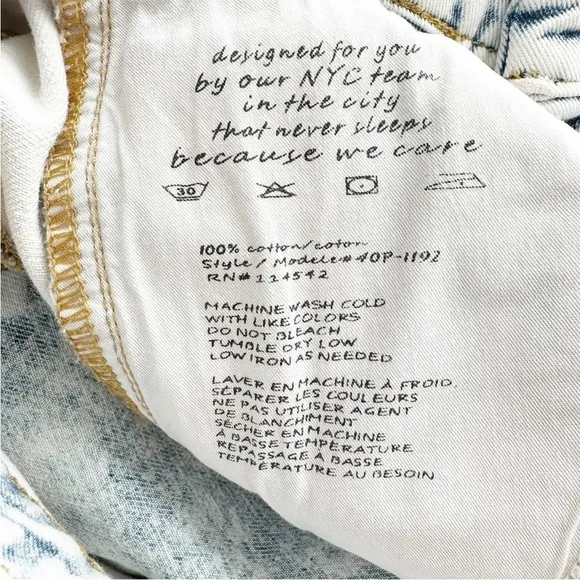 designed for you
by our NYC team
in the city
that never sleeps
because we care
30
100% cotton/coton
Style / Modele# 40P-1192
RN# 124542
MACHINE WASH COLD
WITH LIKE COLORS
DO NOT BLEACH
TUMBLE DRY LOW
LOW IRON AS NEEDED
LAVER EN MACHINE À FROID.
SÉPARER LES COULEURS
NE PAS UTILISER AGENT
DE BLANCHIMENT
SÉCHER EN MACHINE
À BASSE TEMPÉRATURE
REPASSAGE À BASSE
TEMPÉRATURE AU BESOIN